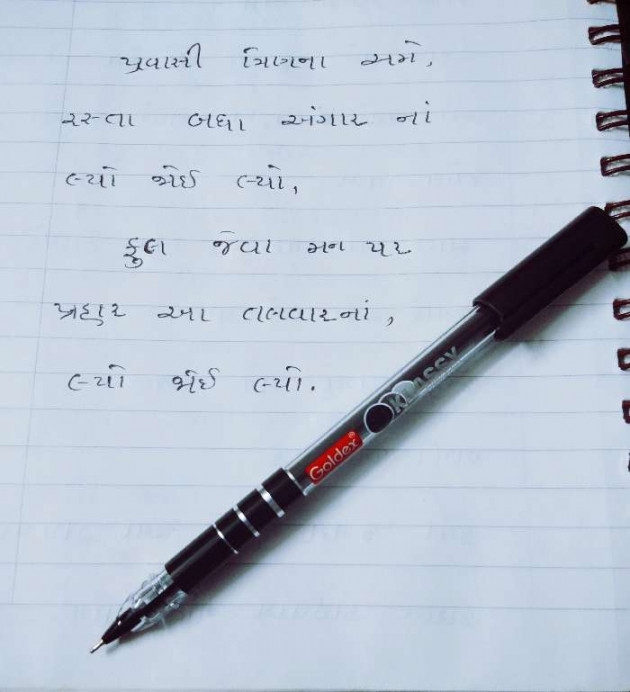 પ્રવાસી ત્રિણના અમે,
રસ્તા બધા અંગાર નાં
લ્યો જોઈ લ્યો,
ફુલ જેવા મન પર
પ્રહાર આ તલવારનાં,
લ્યો જોઈ લ્યો.
KLASSY
Goldex